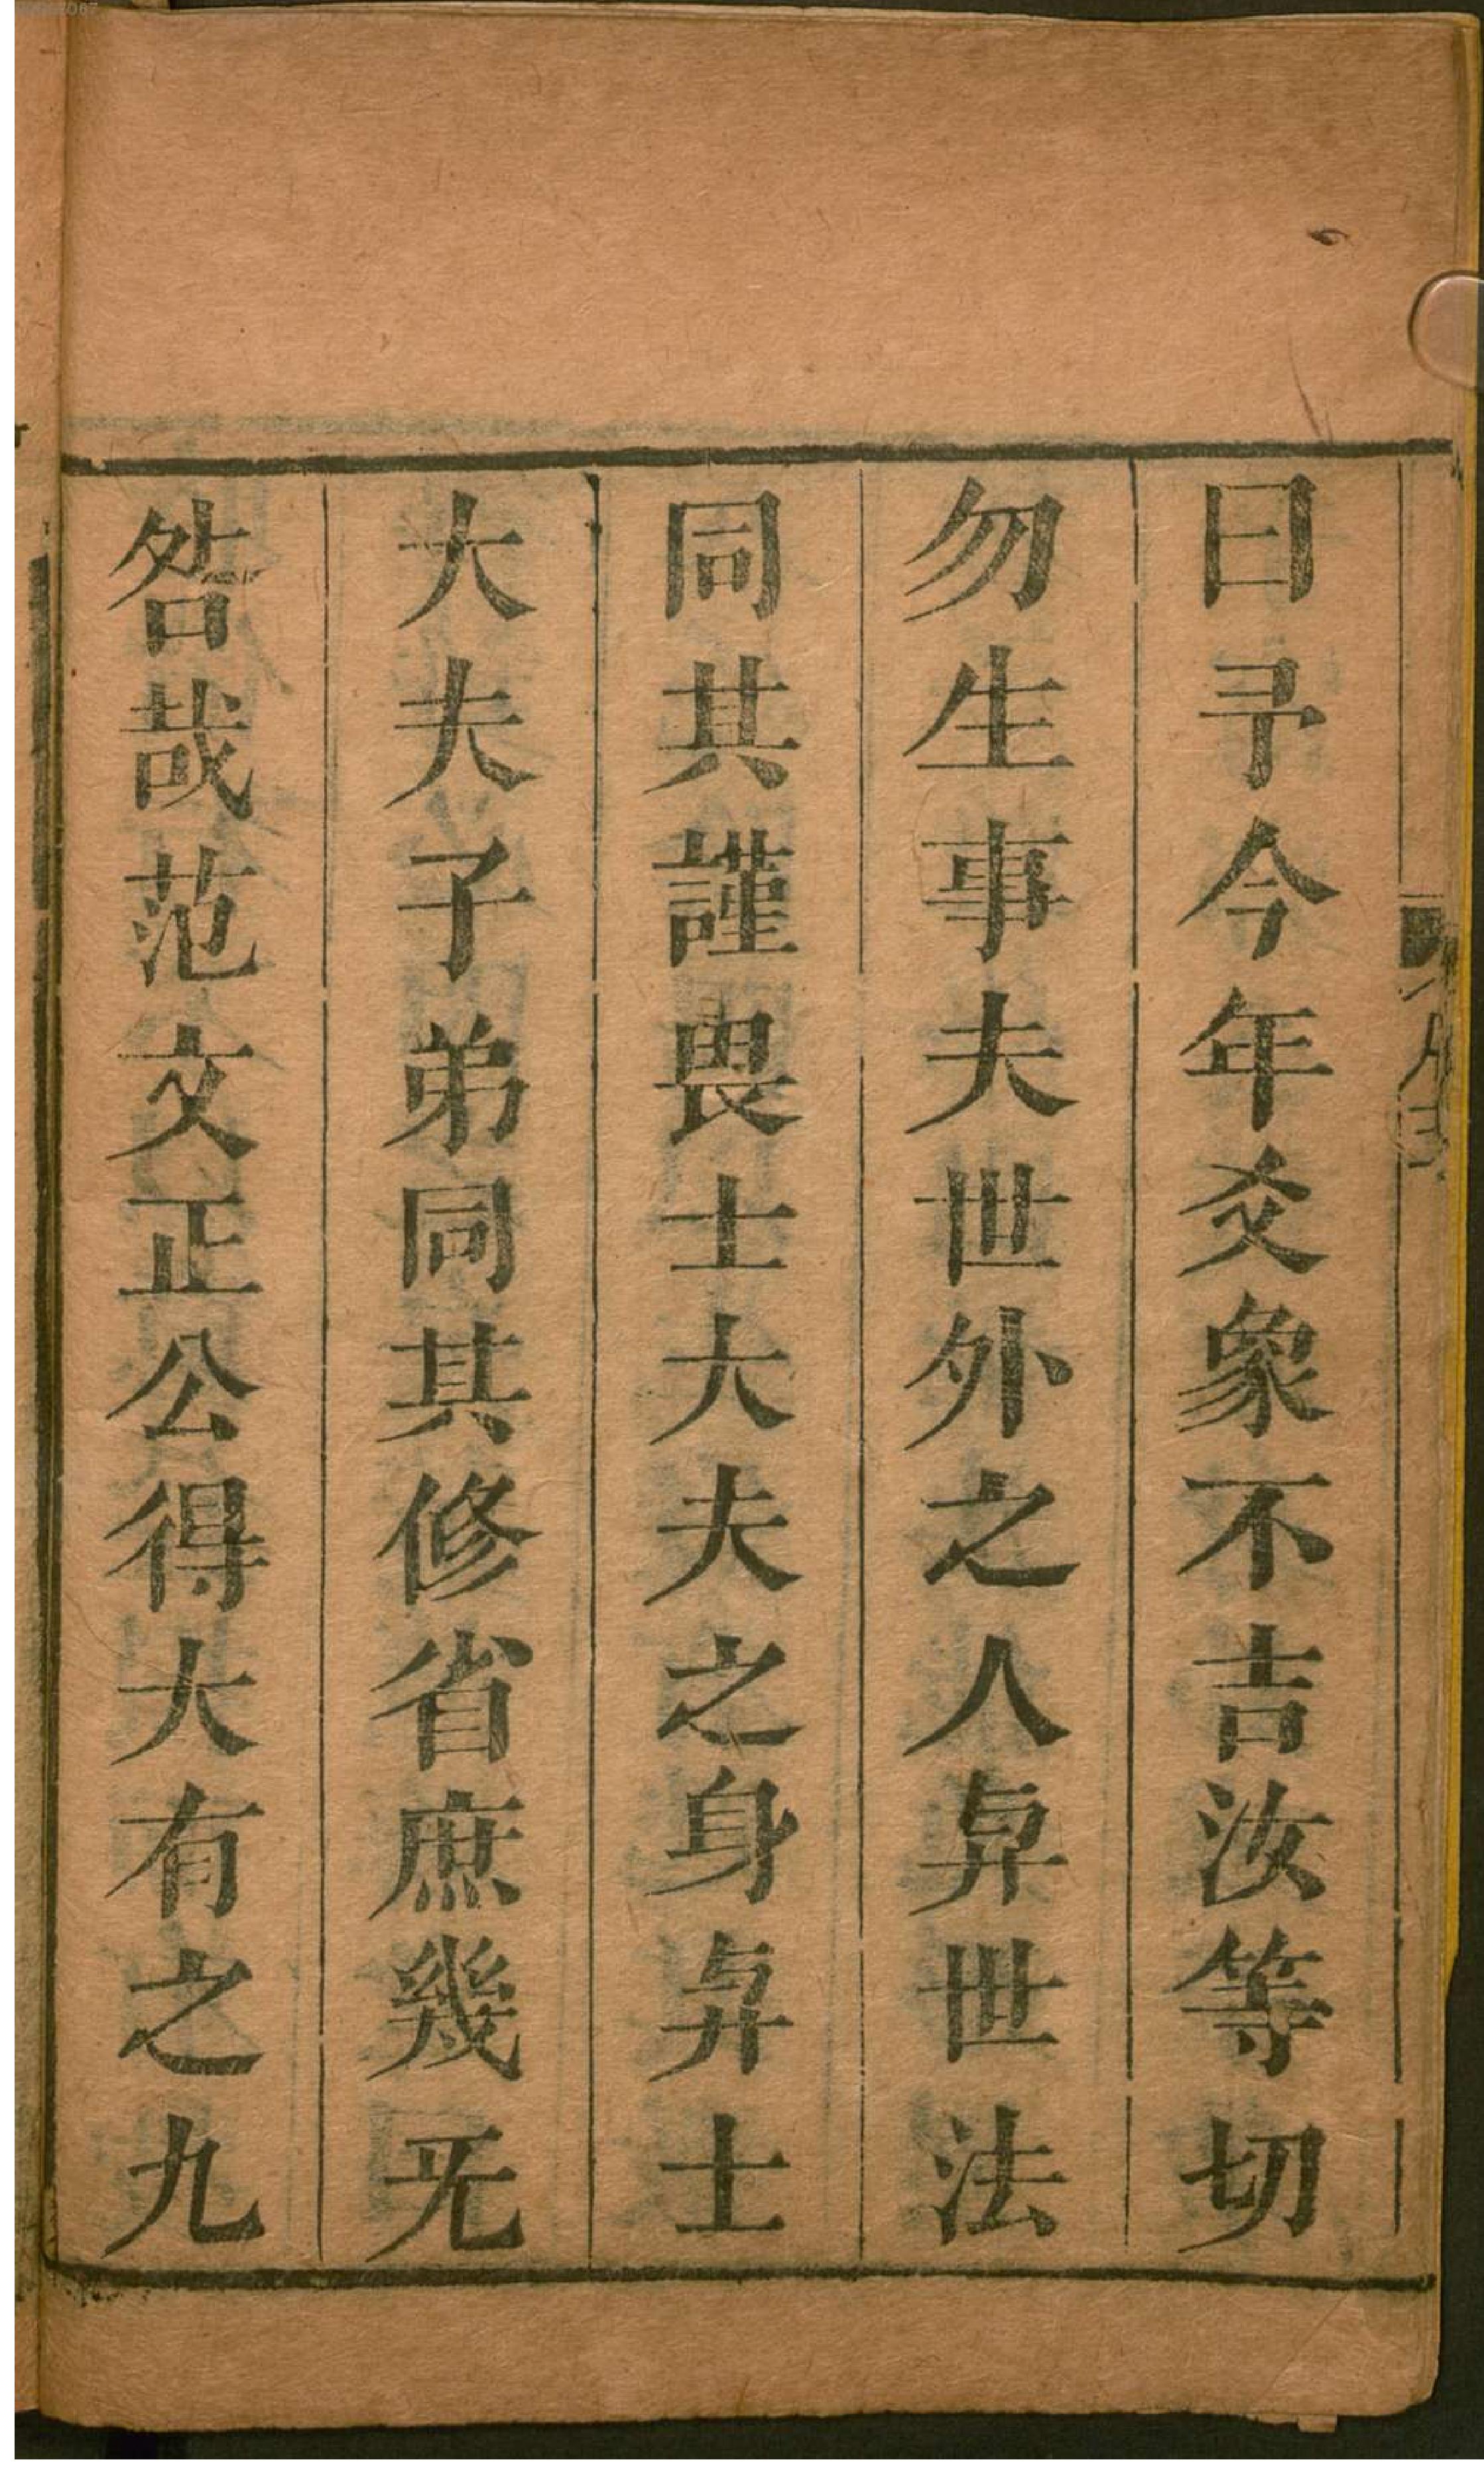 曰予今年爻象不吉汝等切
勿生事夫世外之人𢌿世法
同其謹畏士大夫之身𢌿士
大夫子弟同其修省庶幾无
咎哉范文正公得大有之九